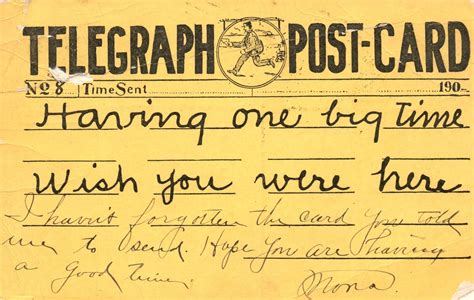 TELEGRAPH POST-CARD
No 8 Time Sent 190
Having one big time
Wish you were here
I havn't forgotten the card you told
me to send. Hope you are having
a good time.
Nona.